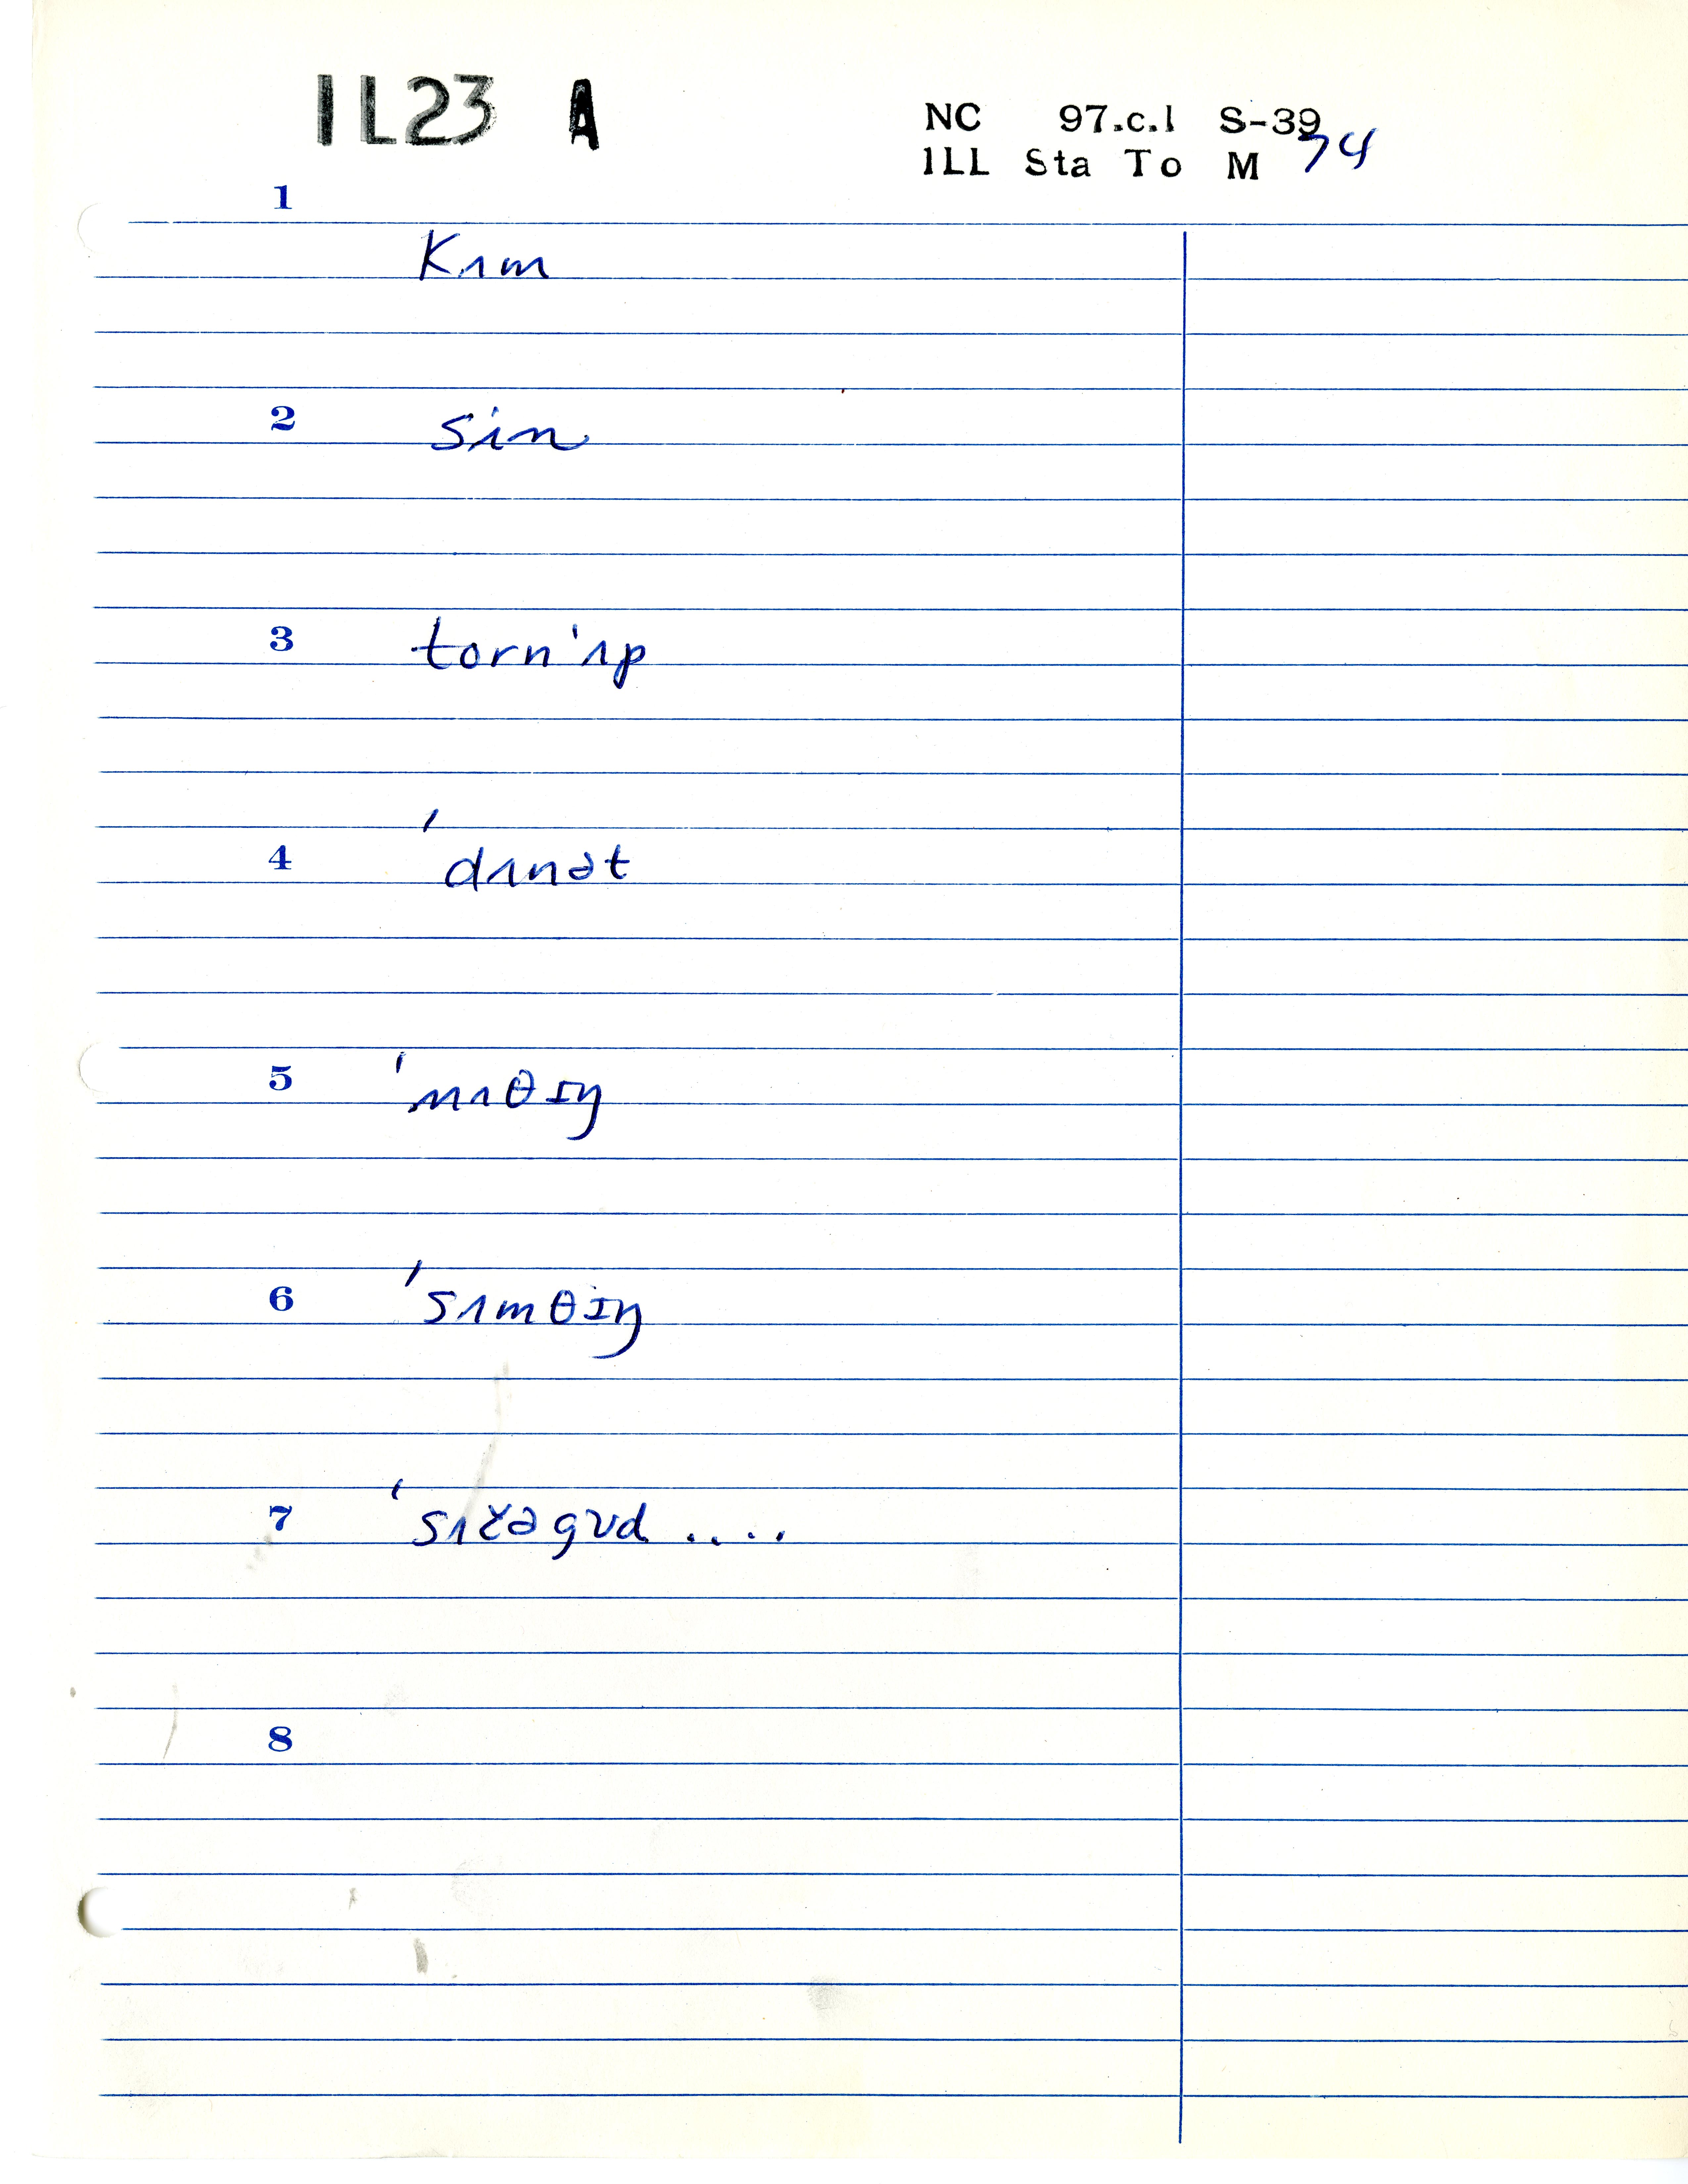 IL23 A
NC 97.c.1 S-39
74
ILL Sta To M
1
kʌm
2
sin
3
torn'ʌp
4
'dʌnət
5
'nʌθɪŋ
6
'sʌmθɪŋ
7
'sʌčəgʊd ....
8